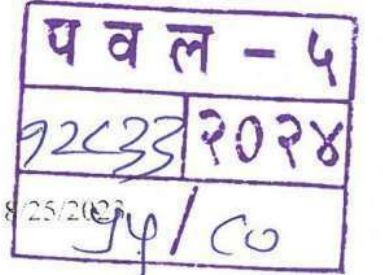 पवल - ५
१२८३३ २०२४
8/25/2023
१५/८०